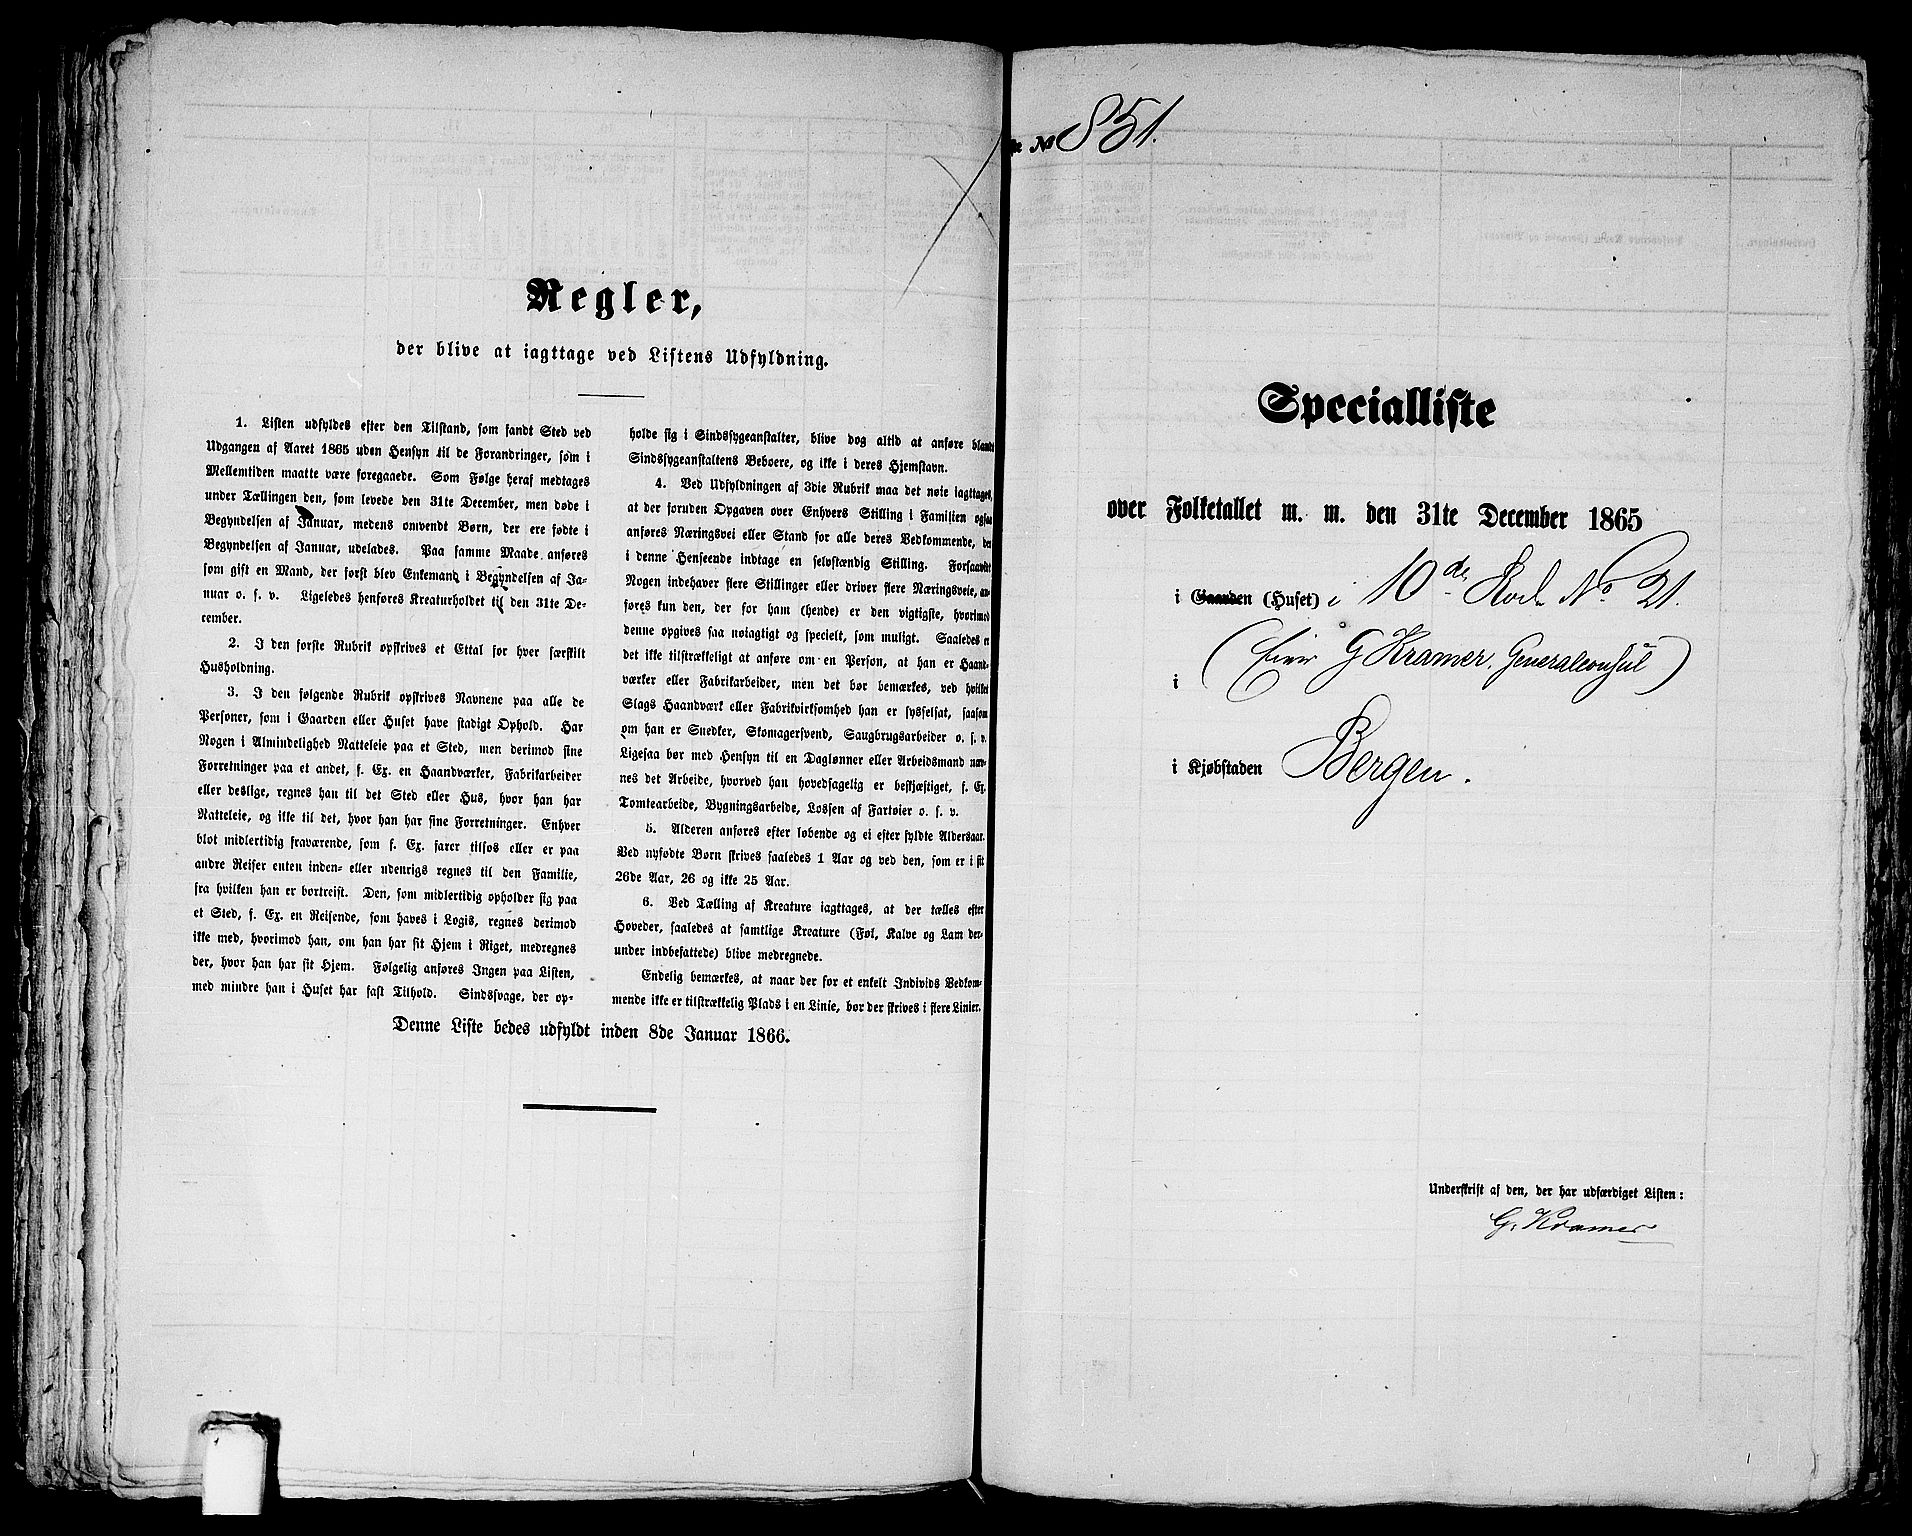 Regler,
der blive at iagttage ved Listens Udfyldning.
1. Listen udfyldes efter den Tilstand, som fandt Sted ved
Udgangen af Aaret 1865 uden Hensyn til de Forandringer, som i
Mellemtiden maatte være foregaaede. Som Følge heraf medtages
under Tællingen den, som levede den 31te December, men døde i
Begyndelsen af Januar, medens omvendt Børn, der ere fødte i
Begyndelsen af Januar, udelades. Paa samme Maade anføres
som gift en Mand, der først blev Enkemand i Begyndelsen af Ja-
nuar o. s. v. Ligeledes henføres Kreaturholdet til den 31te De-
cember.
2. I den første Rubrik opskrives et Ettal for hver særskilt
Husholdning.
3. I den følgende Rubrik opskrives Navnene paa alle de
Personer, som i Gaarden eller Huset have stadigt Ophold. Har
Nogen i Almindelighed Natteleie paa et Sted, men derimod sine
Forretninger paa et andet, f. Ex. en Haandværker, Fabrikarbeider
eller deslige, regnes han til det Sted eller Hus, hvor han har
Natteleie, og ikke til det, hvor han har sine Forretninger. Enhver
blot midlertidig fraværende, som f. Ex. farer tilsøs eller er paa
andre Reiser enten inden- eller udenrigs regnes til den Familie,
fra hvilken han er bortreist. Den, som midlertidig opholder sig paa
et Sted, f. Ex. en Reisende, som haves i Logis, regnes derimod
ikke med, hvorimod han, om han har sit Hjem i Riget, medregnes
der, hvor han har sit Hjem. Følgelig anføres Ingen paa Listen,
med mindre han i Huset har fast Tilhold. Sindssvage, der op-
holde sig i Sindssygeanstalter, blive dog altid at anføre blandt
Sindssygeanstaltens Beboere, og ikke i deres Hjemstavn.
4. Ved Udfyldningen af 3die Rubrik maa det nøie iagttages,
at der foruden Opgaven over Enhvers Stilling i Familien ogsaa
anføres Næringsvei eller Stand for alle deres Vedkommende, der
i denne Henseende indtage en selvstændig Stilling. Forsaavidt
Nogen indehaver flere Stillinger eller driver flere Næringsveie, an-
føres kun den, der for ham (hende) er den vigtigste, hvorimod
denne opgives saa nøiagtigt og specielt, som muligt. Saaledes er
det ikke tilstrækkeligt at anføre om en Person, at han er Haand-
værker eller Fabrikarbeider, men det bør bemærkes, ved hvilket
Slags Haandværk eller Fabrikvirksomhed han er sysselsat, saasom
om han er Snedker, Skomagersvend, Saugbrugsarbeider o. s. v.
Ligesaa bør med Hensyn til en Daglønner eller Arbeidsmand næv-
nes det Arbeide, hvorved han hovedsagelig er beskjæftiget, f. Ex.
Tomtearbeide, Bygningsarbeide, Lossen af Fartøier o. s. v.
5. Alderen anføres efter løbende og ei efter fyldte Aldersaar.
Ved nyfødte Børn skrives saaledes 1 Aar og ved den, som er i sit
26de Aar, 26 og ikke 25 Aar.
6. Ved Tælling af Kreature iagttages, at der tælles efter
Hoveder, saaledes at samtlige Kreature (Føl, Kalve og Lam der-
under indbefattede) blive medregnede.
Endelig bemærkes, at naar der for et enkelt Individs Vedkom-
mende ikke er tilstrækkelig Plads i en Linie, bør der skrives i flere Linier.
Denne Liste bedes udfyldt inden 8de Januar 1866.
te No 851.
Specialliste
over Folketallet m. m. den 31te December 1865
i Gaarden (Huset) i 10de Rode No 21.
(Eier G Kramer, Generalconsul)
i
i Kjøbstaden Bergen.
Underskrift af den, der har udfærdiget Listen:
G. Kramer